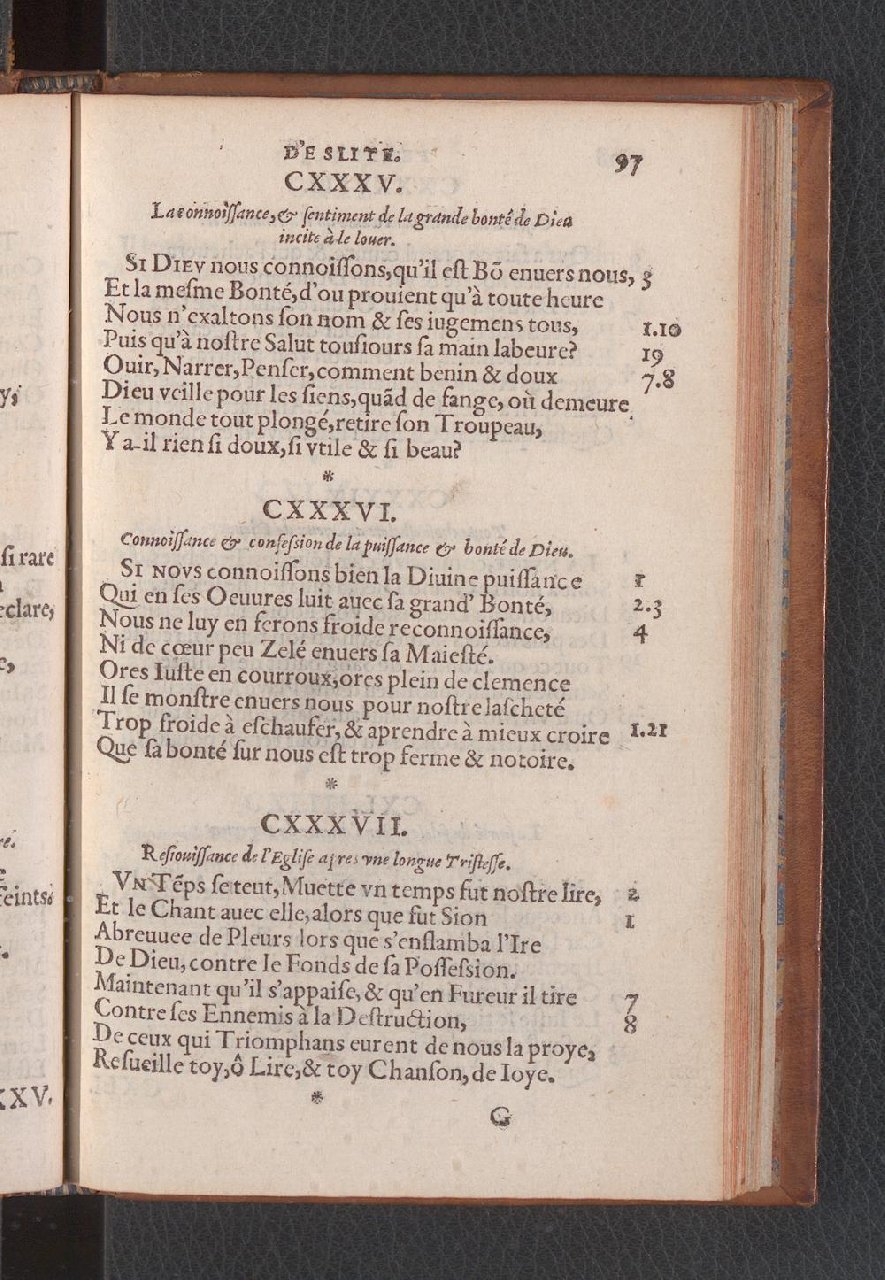 y,
si rare
a
eclare,
e,
re.
e
feints.
.
XXV.
D'ESLITE. 97
CXXXV.
La connoiſſance, & ſentiment de la grande bonté de Dieu
incite à le louer.
SI DIEV nous connoiſſons, qu'il eſt Bõ enuers nous, 3
Et la meſme Bonté, d'ou prouient qu'à toute heure
Nous n'exaltons ſon nom & ſes iugemens tous, 1.10
Puis qu'à noſtre Salut touſiours ſa main labeure? 19
Ouir, Narrer, Penſer, comment benin & doux 7.8
Dieu veille pour les ſiens, quãd de fange, où demeure
Le monde tout plongé, retire ſon Troupeau,
Y a-il rien ſi doux, ſi vtile & ſi beau?
*
CXXXVI.
Connoiſſance & confeſsion de la puiſſance & bonté de Dieu.
SI NOVS connoiſſons bien la Diuine puiſſance 1
Qui en ſes Oeuures luit auec ſa grand' Bonté, 2.3
Nous ne luy en ferons froide reconnoiſſance, 4
Ni de cœur peu Zelé enuers ſa Maieſté.
Ores Iuſte en courroux, ores plein de clemence
Il ſe monſtre enuers nous pour noſtre laſcheté
Trop froide à eſchaufer, & aprendre à mieux croire 1.21
Que ſa bonté ſur nous eſt trop ferme & notoire.
*
CXXXVII.
Reſiouiſſance de l'Egliſe apres vne longue Triſteſſe.
VN Tẽps ſe teut, Muette vn temps fut noſtre lire, 2
Et le Chant auec elle, alors que fut Sion 1
Abreuuee de Pleurs lors que s'enflamba l'Ire
De Dieu, contre le Fonds de ſa Poſſeſsion.
Maintenant qu'il s'appaiſe, & qu'en Fureur il tire 7
Contre ſes Ennemis à la Deſtruction, 8
De ceux qui Triomphans eurent de nous la proye,
Reſueille toy, ô Lire, & toy Chanſon, de Ioye.
*
G